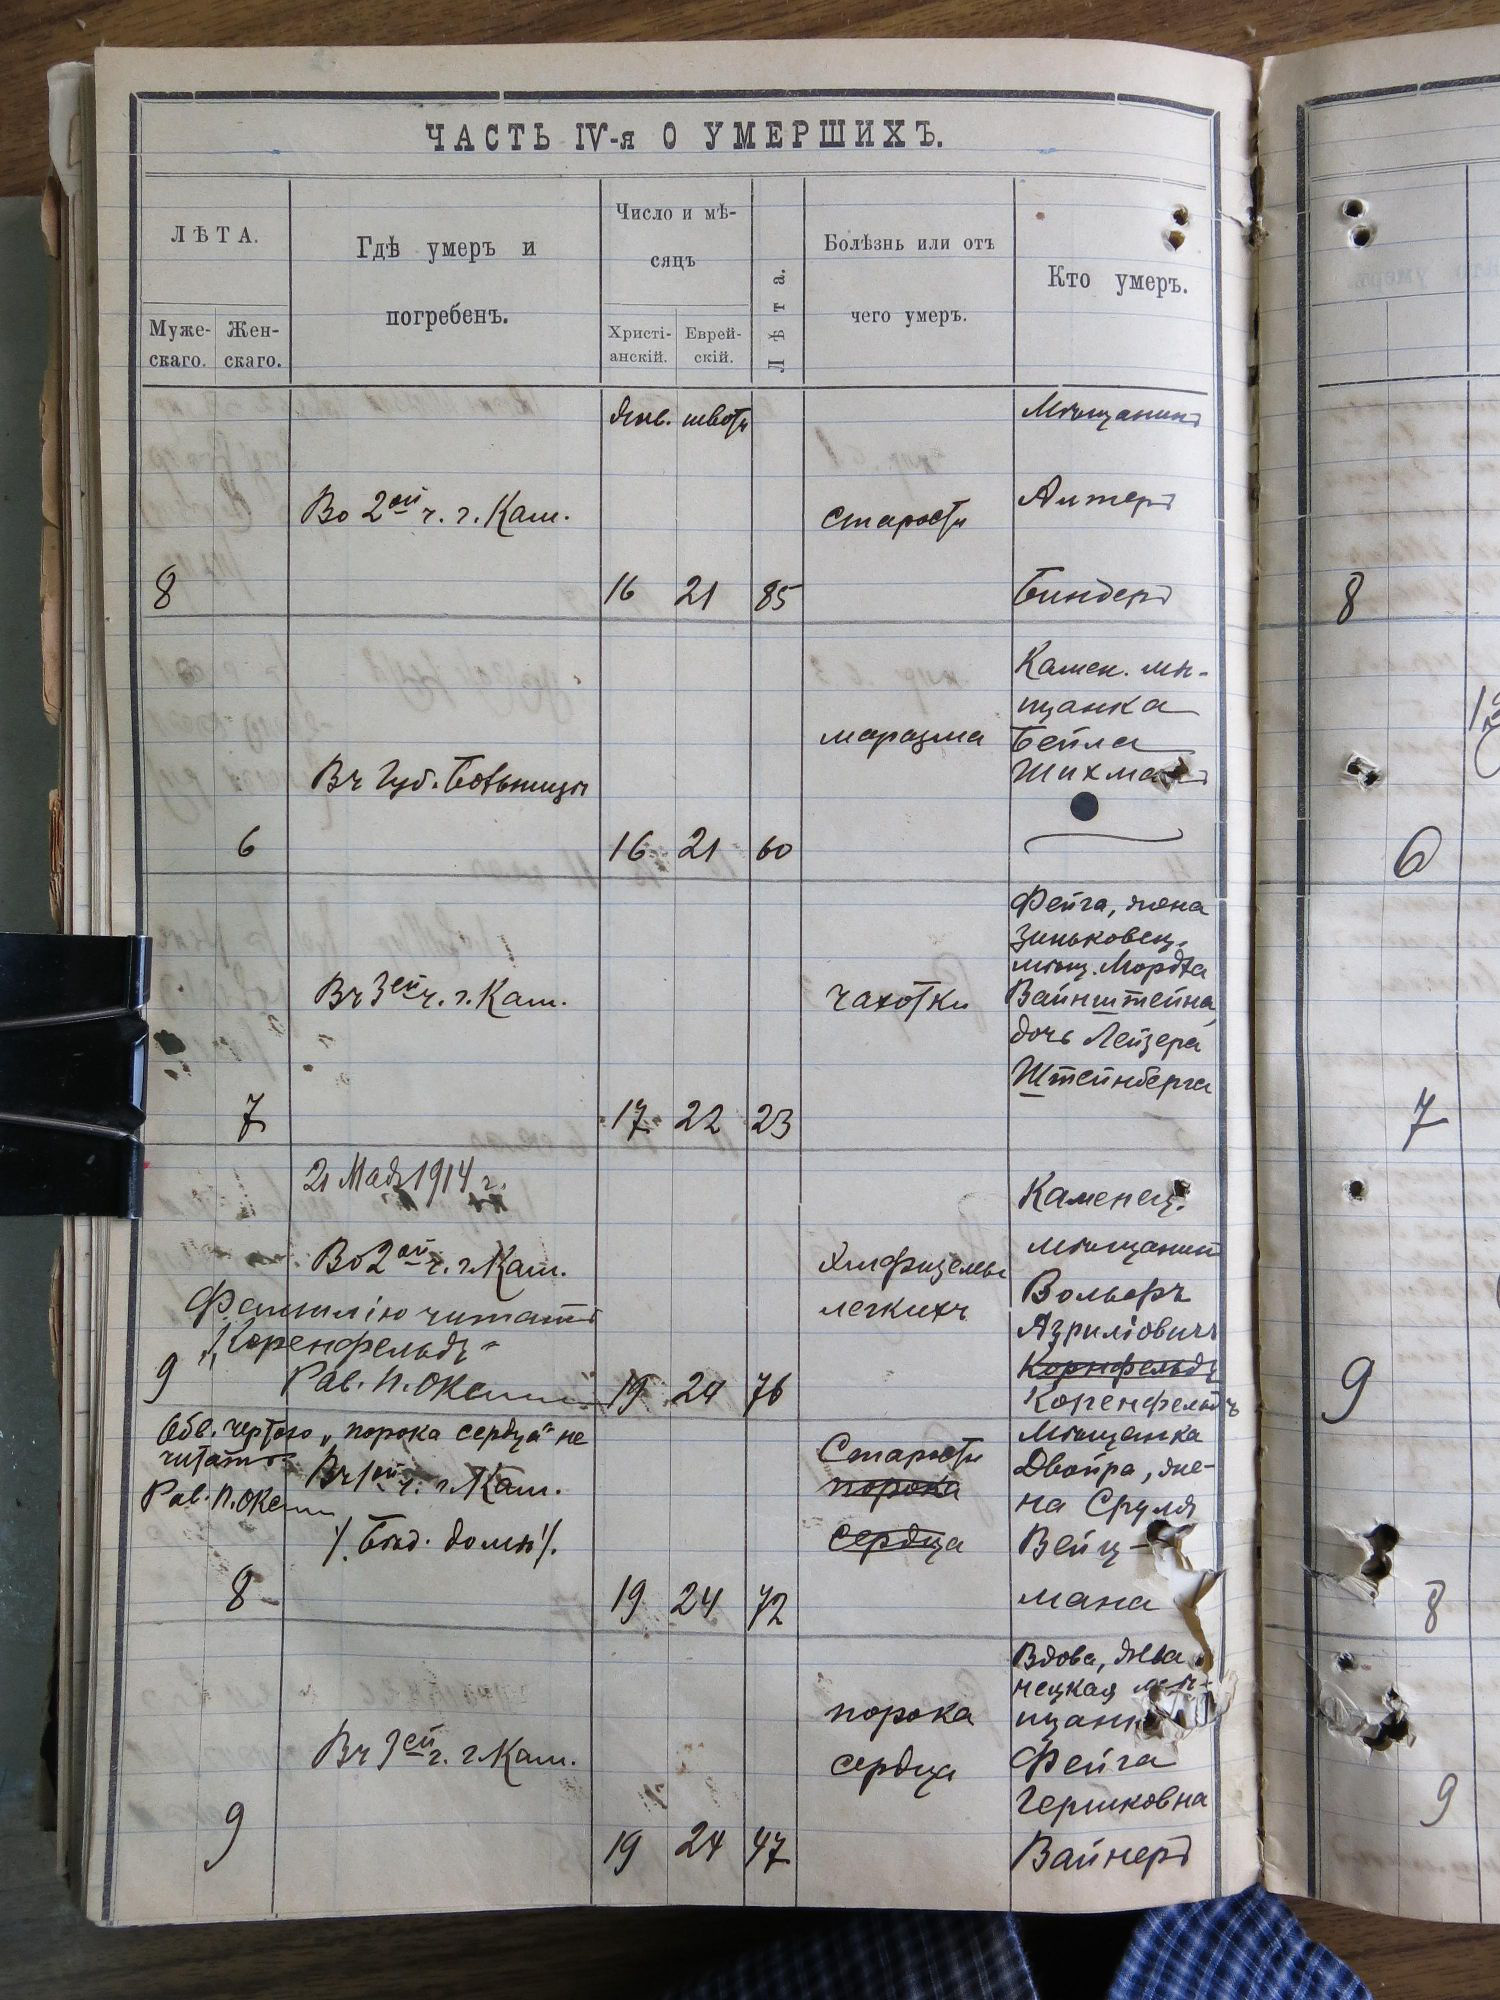 ЧАСТЬ IV-я О УМЕРШИХЪ.
ЛѢТА.
Муже-
скаго.
Жен-
скаго.
Гдѣ умеръ и
погребенъ.
Число и мѣ-
сяцъ
Христі-
анскій.
Еврей-
скій.
Лѣта.
Болѣзнь или отъ
чего умеръ.
Кто умеръ.
8
Во 2ой ч. г. Кам.
Янв. швотъ
16 21 85
старости
Мѣщанинъ
Алтеръ
Биндеръ
8
6
Въ Губ. Больницѣ
16 21 60
маразма
Камен. мѣ-
щанка
Бейла
Шихма
6
7
Въ 3ей ч. г. Кам.
17 22 23
чахотки
Фейга, жена
Зиньковец.
мѣщ. Мордха
Вайнштейна,
дочь Лейзера
Штейнберга
7
9
21 1914 г.
Во 2ой ч. г. Кам.
Фамилію читать
"Коренфельдъ"
Рав. П.
19 24 76
легкихъ
Каменец.
мѣщанинъ
Вольфъ
Азриліовичъ
Корнфельдъ
Коренфельдъ
9
чертою „порока сердца" не
читать
Рав. П.
8
Въ 1ой ч. г. Кам.
/. Бод. домъ/.
19 24 72
Старости
порока
сердца
Мѣщанка
Двойра, же-
на Сруля
Вейц-
мана
8
9
Въ 3ей ч. г. Кам.
19 24 47
порока
сердца
Вдова, Жва
нецкая мѣ-
щанк
Фейга
Гершковна
Вайнеръ
9